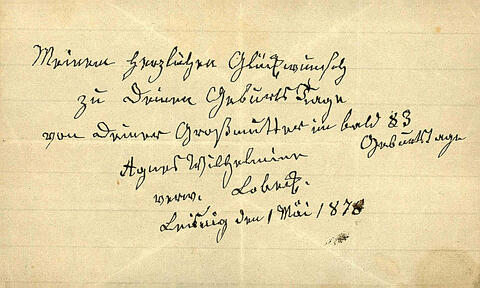 Meinem herzlichen Glückwunsch
zu Deinem Geburts Tage
von Deiner Großmutter im bald 83
Geburtstage
Agnes Wilhelmine
verw. Lobeck.
Leipzig den 1 Mäi 1878